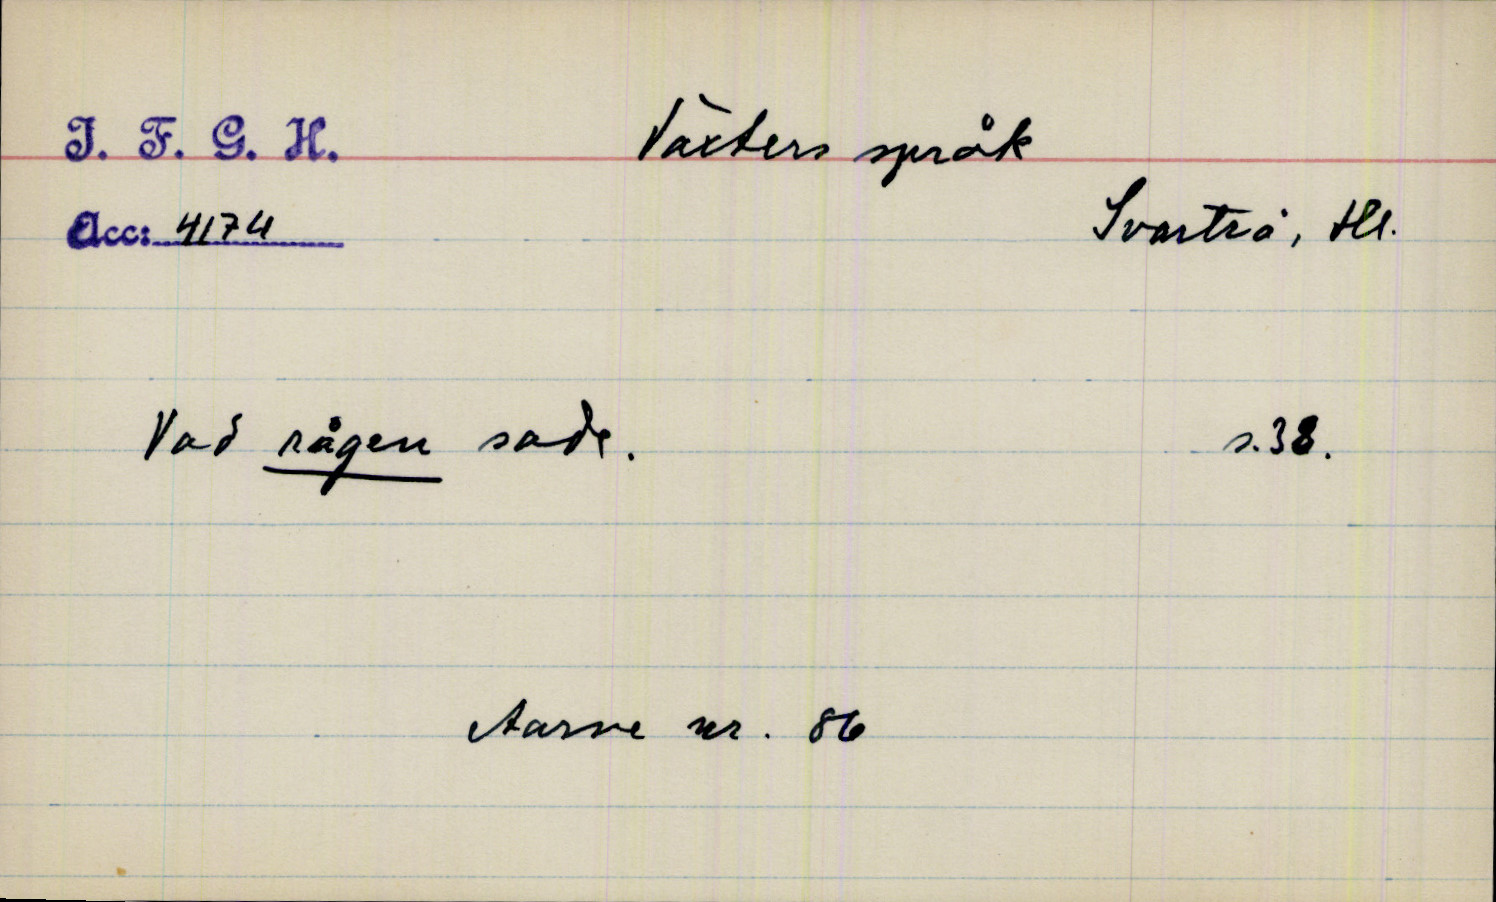 I. F. G. H. Växters språk
Acc: 4174 Svartrå, Hl.
Vad rågen sade. s. 38.
Aarne nr. 86